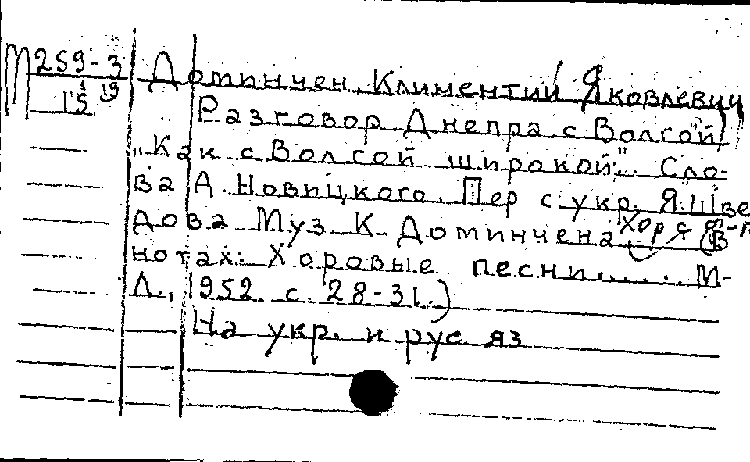 М 259-3 Доминчен Климентий Яковлевич
15 19 Разговор Днепра с Волгой
"Как с Волгой широкой". Сло-
ва А. Новицкого. Пер с укр. Я. Шве
дова Муз К. Доминчена Хор с ф-п (В
нотах: Хоровые песни...... М-
Л., 1952. с 28-31.)
На укр. и рус яз